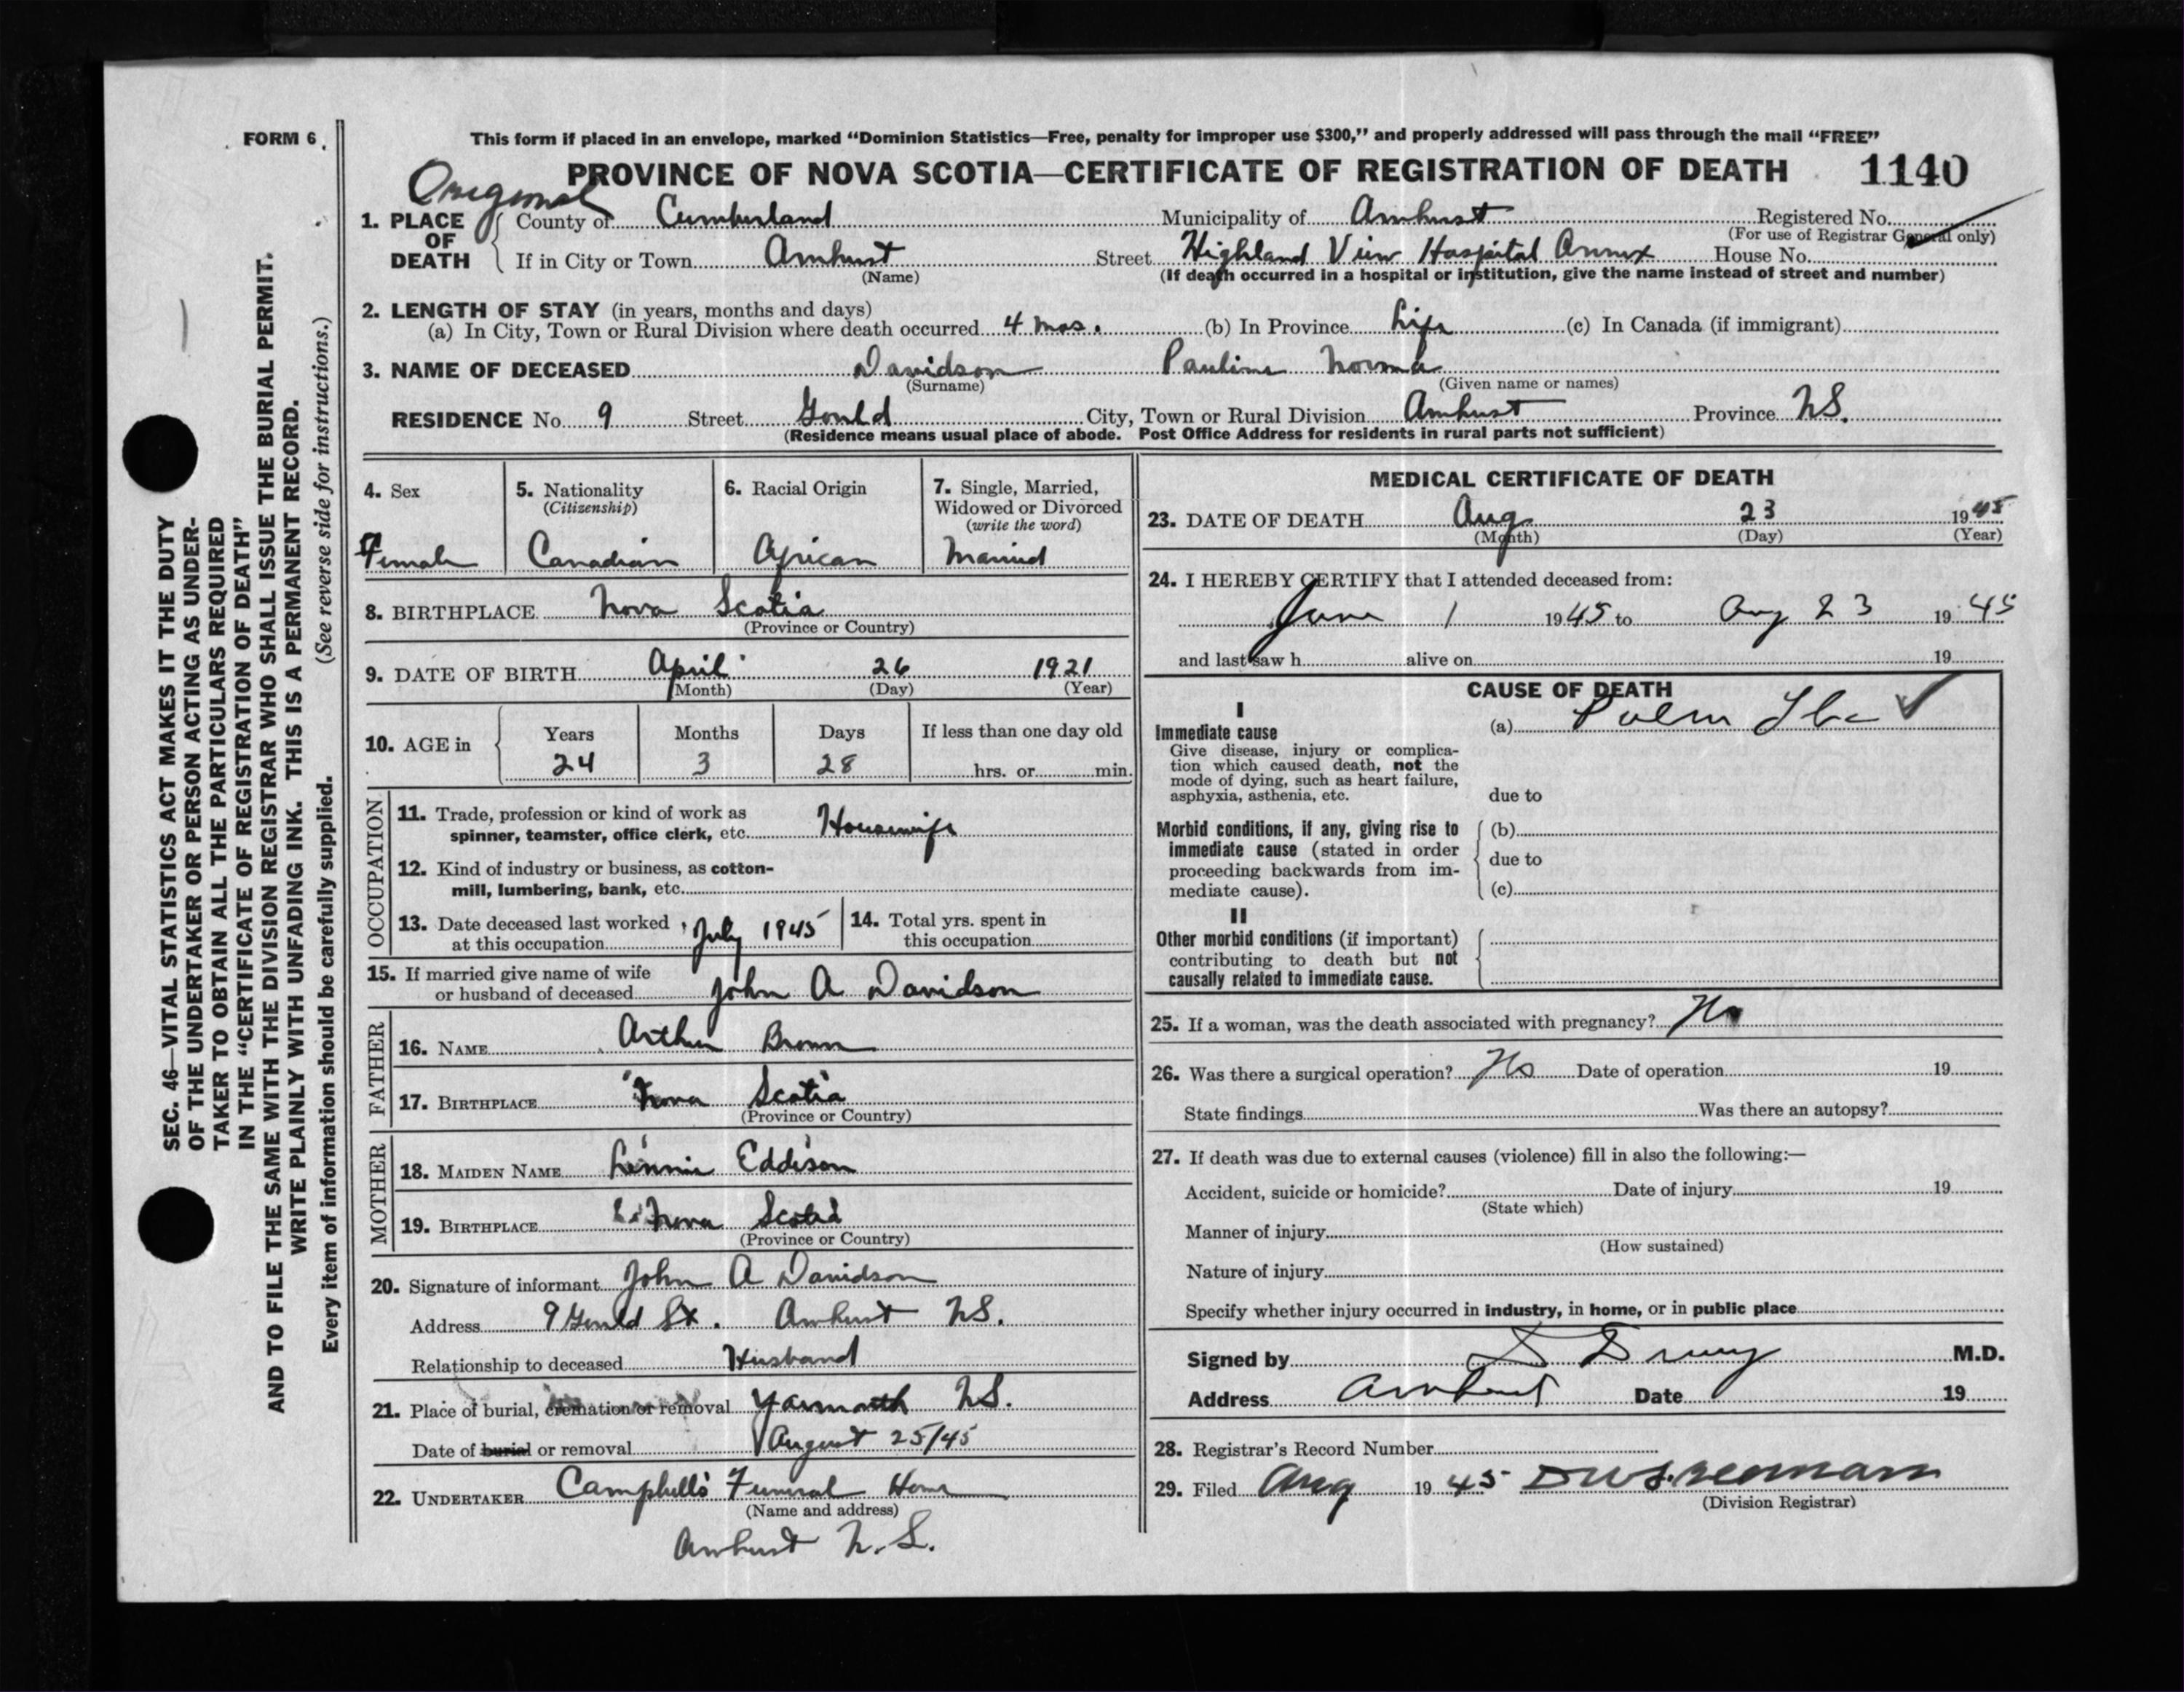 FORM 6
This form if placed in an envelope, marked “Dominion Statistics—Free, penalty for improper use $300,” and properly addressed will pass through the mail “FREE”
Original
PROVINCE OF NOVA SCOTIA—CERTIFICATE OF REGISTRATION OF DEATH 1140
1. PLACE OF DEATH County of Cumberland Municipality of Amherst Registered No.
(For use of Registrar General only)
If in City or Town Amherst Street Highland View Hospital Annex House No.
(Name) (If death occurred in a hospital or institution, give the name instead of street and number)
2. LENGTH OF STAY (in years, months and days)
(a) In City, Town or Rural Division where death occurred 4 mos. (b) In Province Life (c) In Canada (if immigrant)
3. NAME OF DECEASED Davidson Pauline Norma
(Surname) (Given name or names)
RESIDENCE No. 9 Street Gould City, Town or Rural Division Amherst Province N.S.
(Residence means usual place of abode. Post Office Address for residents in rural parts not sufficient)
4. Sex
Female
5. Nationality
(Citizenship)
Canadian
6. Racial Origin
African
7. Single, Married,
Widowed or Divorced
(write the word)
Married
8. BIRTHPLACE Nova Scotia
(Province or Country)
9. DATE OF BIRTH April 26 1921
(Month) (Day) (Year)
10. AGE in Years Months Days If less than one day old
24 3 28 hrs. or min.
OCCUPATION
11. Trade, profession or kind of work as
spinner, teamster, office clerk, etc. Housewife
12. Kind of industry or business, as cotton-
mill, lumbering, bank, etc.
13. Date deceased last worked
at this occupation July 1945
14. Total yrs. spent in
this occupation
15. If married give name of wife
or husband of deceased John A Davidson
FATHER
16. NAME Arthur Brown
17. BIRTHPLACE Nova Scotia
(Province or Country)
MOTHER
18. MAIDEN NAME Lennie Eddison
19. BIRTHPLACE Nova Scotia
(Province or Country)
20. Signature of informant John A Davidson
Address 9 Gould St. Amherst N.S.
Relationship to deceased Husband
21. Place of burial, cremation or removal Yarmouth N.S.
Date of burial or removal August 25/45
22. UNDERTAKER Campbell's Funeral Home
(Name and address)
Amherst N.S.
MEDICAL CERTIFICATE OF DEATH
23. DATE OF DEATH Aug 23 1945
(Month) (Day) (Year)
24. I HEREBY CERTIFY that I attended deceased from:
June 1 1945 to Aug 23 1945
and last saw h alive on 19
CAUSE OF DEATH
I
Immediate cause
Give disease, injury or complica-
tion which caused death, not the
mode of dying, such as heart failure,
asphyxia, asthenia, etc.
(a) Pulm Tbc ✓
due to
Morbid conditions, if any, giving rise to
immediate cause (stated in order
proceeding backwards from im-
mediate cause).
(b)
due to
(c)
II
Other morbid conditions (if important)
contributing to death but not
causally related to immediate cause.
25. If a woman, was the death associated with pregnancy? No
26. Was there a surgical operation? No Date of operation 19
State findings Was there an autopsy?
27. If death was due to external causes (violence) fill in also the following:—
Accident, suicide or homicide? Date of injury 19
(State which)
Manner of injury
(How sustained)
Nature of injury
Specify whether injury occurred in industry, in home, or in public place
Signed by M.D.
Address Amherst Date 19
28. Registrar's Record Number
29. Filed Aug 1945
(Division Registrar)
SEC. 46—VITAL STATISTICS ACT MAKES IT THE DUTY
OF THE UNDERTAKER OR PERSON ACTING AS UNDER-
TAKER TO OBTAIN ALL THE PARTICULARS REQUIRED
IN THE “CERTIFICATE OF REGISTRATION OF DEATH”
AND TO FILE THE SAME WITH THE DIVISION REGISTRAR WHO SHALL ISSUE THE BURIAL PERMIT.
WRITE PLAINLY WITH UNFADING INK. THIS IS A PERMANENT RECORD.
(See reverse side for instructions.)
Every item of information should be carefully supplied.